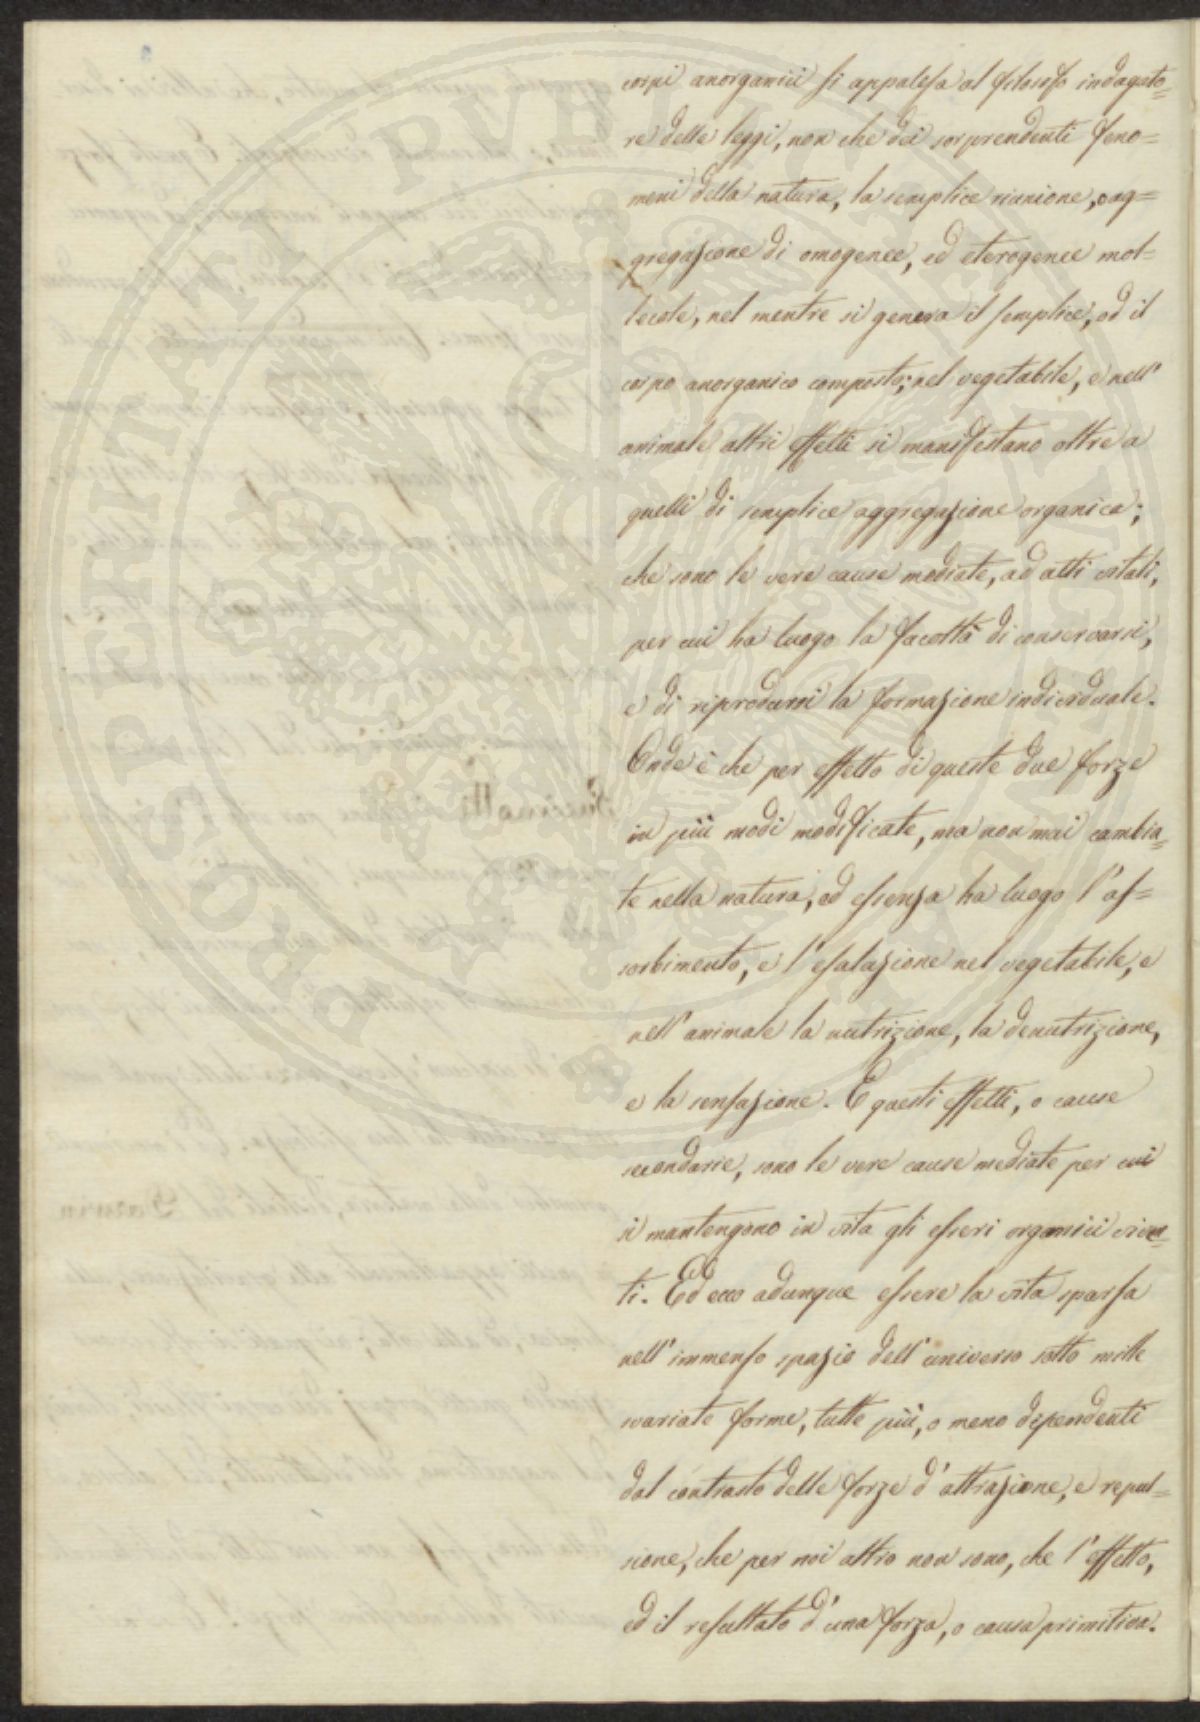 corpi anorganici si appalesa al filosofo indagato=
re delle leggi, non che dei sorprendenti feno=
meni della natura, la semplice riunione, o ag=
gregazione di omogenee, ed eterogenee mol=
lecole, nel mentre si genera il semplice, od il
corpo anorganico composto; nel vegetabile, e nell'
animale altri effetti si manifestano oltre a
quelli di semplice aggregazione organica;
che sono le vere cause mediate, ad atti vitali,
per cui ha luogo la facoltà di conservarsi,
e di riprodursi la formazione individuale.
Onde è che per effetto di queste due forze
in più modi modificate, ma non mai cambia=
te nella natura, ed essenza ha luogo l'as=
sorbimento, e l'esalazione nel vegetabile, e
nell'animale la nutrizione, la denutrizione,
e la sensazione. E questi effetti, o cause
secondarie, sono le vere cause mediate per cui
si mantengono in vita gli esseri organici viven=
ti. Ed ecco adunque essere la vita sparsa
nell'immenso spazio dell'universo sotto mille
svariate forme, tutte più, o meno dipendenti
dal contrasto delle forze d'attrazione, e repul=
sione, che per noi altro non sono, che l'effetto,
ed il resultato d'una forza, o causa primitiva.
PROSPERITATI PVBLICAE